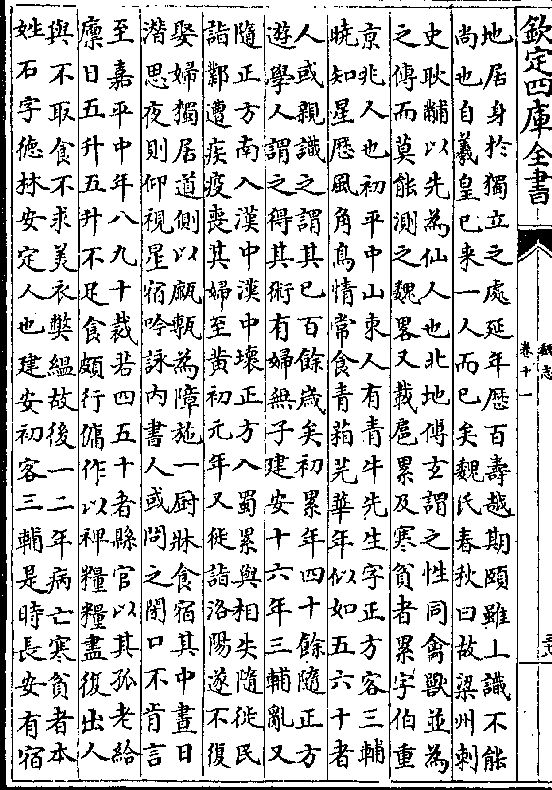 欽定四庫全書
魏志
卷十一
地居身於獨立之處延年厯百壽越期頤雖上識不能
尚也自羲皇已来一人而已矣魏氏春秋曰故梁州刺
史耿黼以先為仙人也北地傅玄謂之性同禽獸並為
之傳而莫能測之魏畧又載扈累及寒貧者累字伯重
京兆人也初平中山東人有青牛先生字正方客三輔
曉知星厯風角鳥情常食青葙芫華年似如五六十者
人或親識之謂其已百餘歳矣初累年四十餘隨正方
遊學人謂之得其術有婦無子建安十六年三輔亂又
隨正方南入漢中漢中壊正方入蜀累與相失隨徙民
詣鄴遭疾疫喪其婦至黄初元年又徙詣洛陽遂不復
娶婦獨居道側以甎為障施一厨牀食宿其中晝日
潜思夜則仰視星宿吟詠内書人或問之閉口不肯言
至嘉平中年八九十裁若四五十者縣官以其孤老給
廩日五升五升不足食頗行傭作以裨糧糧盡復出人
與不取食不求美衣弊緼故後一二年病亡寒貧者本
姓石字德林安定人也建安初客三輔是時長安有宿